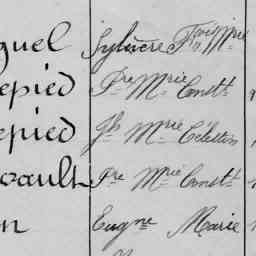 guel Sylvère Fçois Mrie
epied Pre Mrie Constt
epied Jh Mrie Célestin
rault Pre Mrie Constt
n Eugne Marie